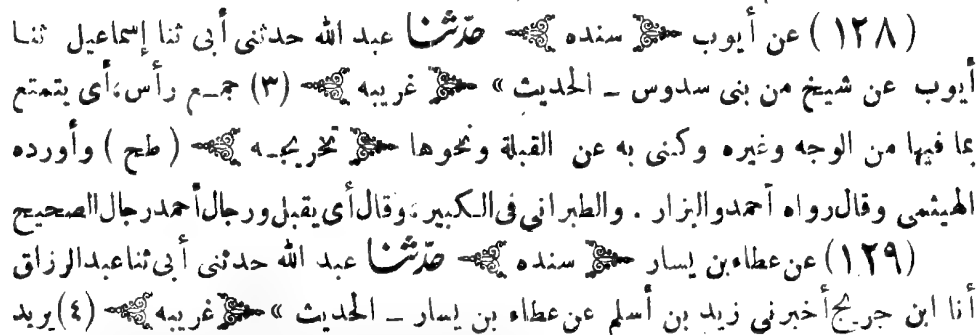 (١٢٨) عن أيوب سنده حدّثنا عبد الله حدثنى أبى ثنا إسماعيل ثنا
أيوب عن شيخ من بنى سدوس ـ الحديث » غريبه (٣) جمع رأس، أى يتمتع
بما فيها من الوجه وغيره وكنى به عن القبلة ونحوها تخريجه (طح) وأورده
الهيثمى وقال رواه أحمد والبزار . والطبرانى فى الكبير، وقال أى يقبل ورجال أحمد رجال الصحيح
(١٢٩) عن عطاء بن يسار سنده حدّثنا عبد الله حدثنى أبى ثنا عبد الرزاق
أنا ابن جريج أخبرنى زيد بن أسلم عن عطاء بن يسار ـ الحديث » غريبه (٤) يريد